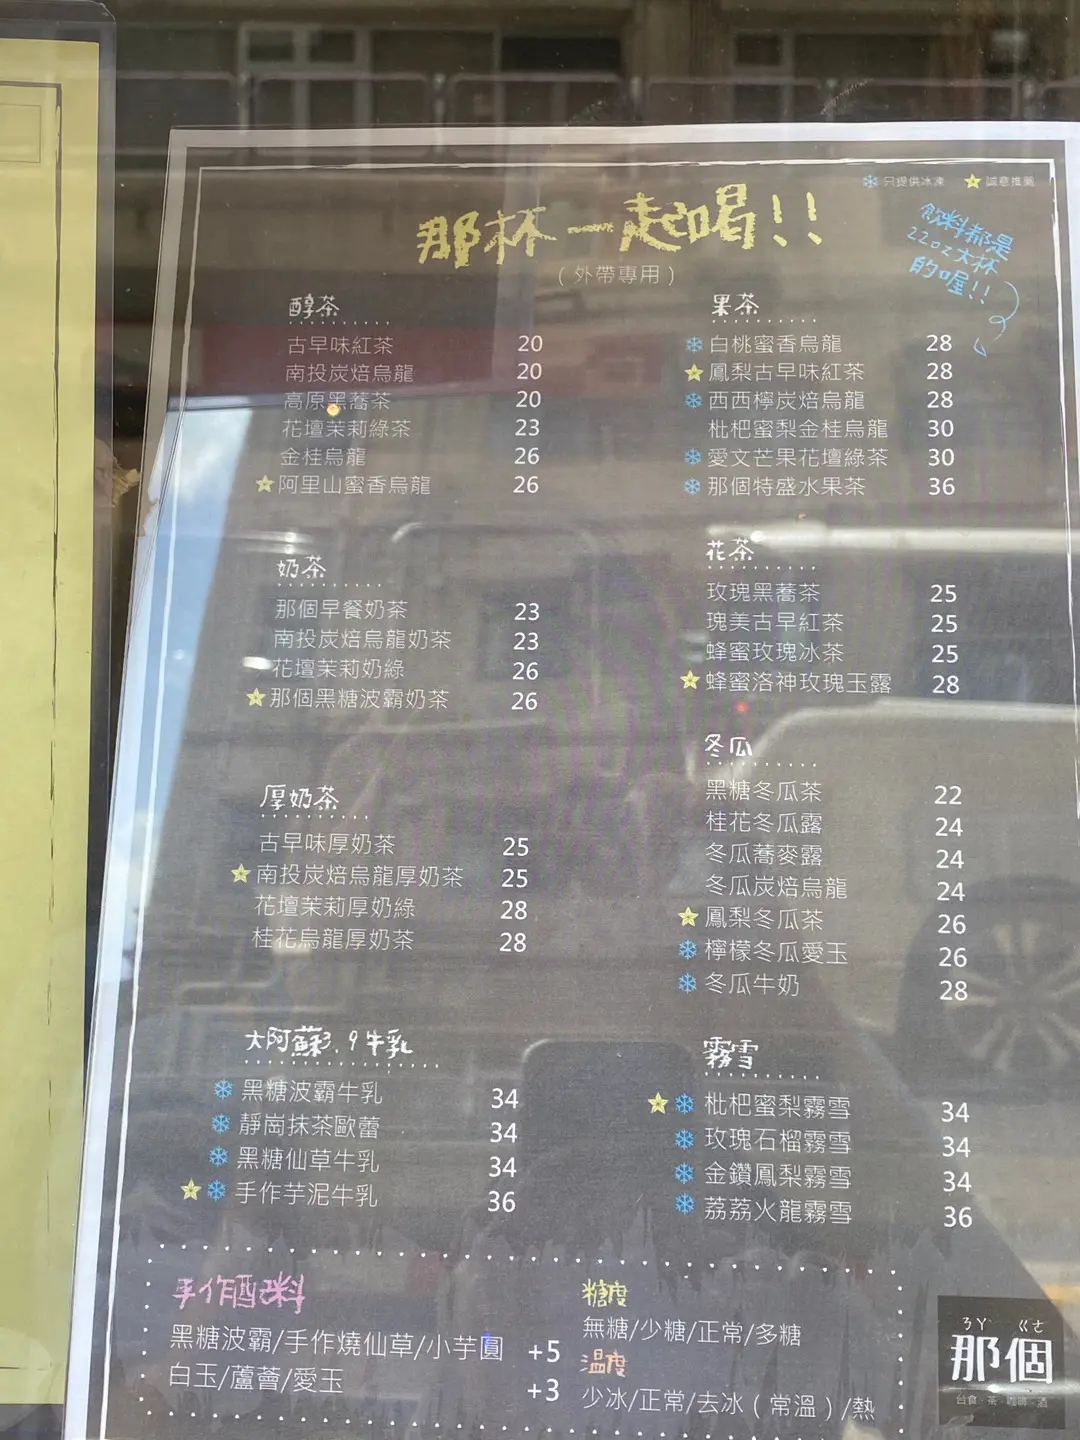 只提供冰凍 誠意推薦
那杯一起喝!!
(外帶專用)
飲料都是
22oz大杯
的喔!!
醇茶
古早味紅茶 20
南投炭焙烏龍 20
高原黑蕎茶 20
花壇茉莉綠茶 23
金桂烏龍 26
阿里山蜜香烏龍 26
奶茶
那個早餐奶茶 23
南投炭焙烏龍奶茶 23
花壇茉莉奶綠 26
那個黑糖波霸奶茶 26
厚奶茶
古早味厚奶茶 25
南投炭焙烏龍厚奶茶 25
花壇茉莉厚奶綠 28
桂花烏龍厚奶茶 28
大阿蘇3.9牛乳
黑糖波霸牛乳 34
靜岡抹茶歐蕾 34
黑糖仙草牛乳 34
手作芋泥牛乳 36
果茶
白桃蜜香烏龍 28
鳳梨古早味紅茶 28
西西檸炭焙烏龍 28
枇杷蜜梨金桂烏龍 30
愛文芒果花壇綠茶 30
那個特盛水果茶 36
花茶
玫瑰黑蕎茶 25
瑰美古早紅茶 25
蜂蜜玫瑰冰茶 25
蜂蜜洛神玫瑰玉露 28
冬瓜
黑糖冬瓜茶 22
桂花冬瓜露 24
冬瓜蕎麥露 24
冬瓜炭焙烏龍 24
鳳梨冬瓜茶 26
檸檬冬瓜愛玉 26
冬瓜牛奶 28
霧雪
枇杷蜜梨霧雪 34
玫瑰石榴霧雪 34
金鑽鳳梨霧雪 34
荔荔火龍霧雪 36
手作配料
黑糖波霸/手作燒仙草/小芋圓 +5
白玉/蘆薈/愛玉 +3
糖度
無糖/少糖/正常/多糖
溫度
少冰/正常/去冰(常溫)/熱
ㄋㄚˋ ㄍㄜ
那個
台食·茶·咖啡·酒